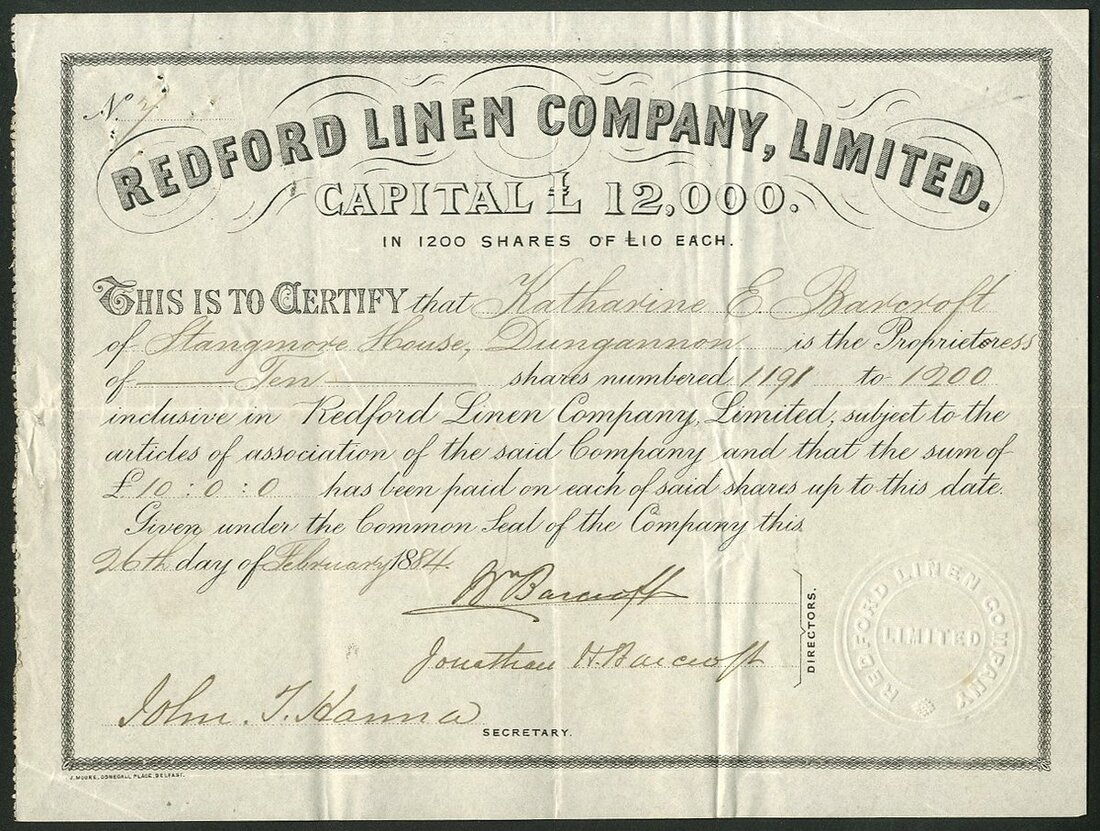 No. 7
REDFORD LINEN COMPANY, LIMITED.
CAPITAL £ 12,000.
IN 1200 SHARES OF £10 EACH.
THIS IS TO CERTIFY that Katharine E. Barcroft
of Stangmore House, Dungannon is the Proprietoress
of Ten shares numbered 1191 to 1200
inclusive in Redford Linen Company, Limited, subject to the
articles of association of the said Company and that the sum of
£10:0:0 has been paid on each of said shares up to this date.
Given under the Common Seal of the Company this
26th day of February 1884.
Wm Barcroft
Jonathan H. Barcroft
DIRECTORS.
REDFORD LINEN COMPANY
LIMITED
John. T. Hanna
SECRETARY.
J. MOORE, DONEGALL PLACE, BELFAST.